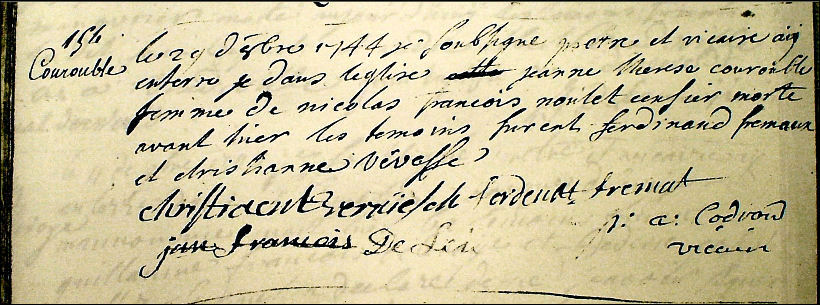 154
Courouble
le 29 d'xbre 1744 je soubsigne pretre et vicaire aij
enterre je dans leglise jeanne therese courouble
femme de nicolas francois noulet censier morte
avant hier les temoins furent ferdinand fremaux
et christianne
christiaent ferdenat fremat
jan francois De
j: a: Codron
vicaire